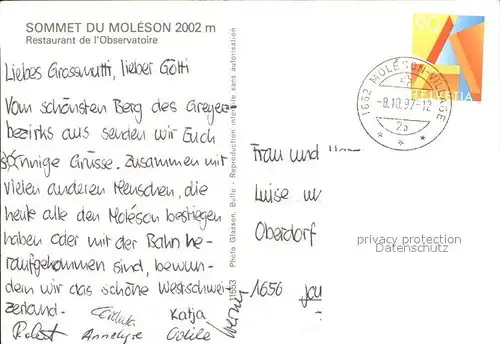 SOMMET DU MOLÉSON 2002 m
Restaurant de l'Observatoire
Liebes Grossmutti, lieber Götti
Vom schönsten Berg des Greyer-
bezirks aus senden wir Euch
sonnige Grüsse. Zusammen mit
vielen anderen Menschen, die
heute alle den Moléson bestiegen
haben oder mit der Bahn he-
raufgekommen sind, bewun-
dern wir das schöne Westschwei-
zerland.
Katja
Robert Annelyse Odile Werner
Photo Glasson, Bulle - Reproduction interdite sans autorisation
90
HELVETIA
1662 MOLÉSON-VILLAGE
-8.10.97-12
Frau und
Luise
Oberdorf
1656
privacy protection
Datenschutz